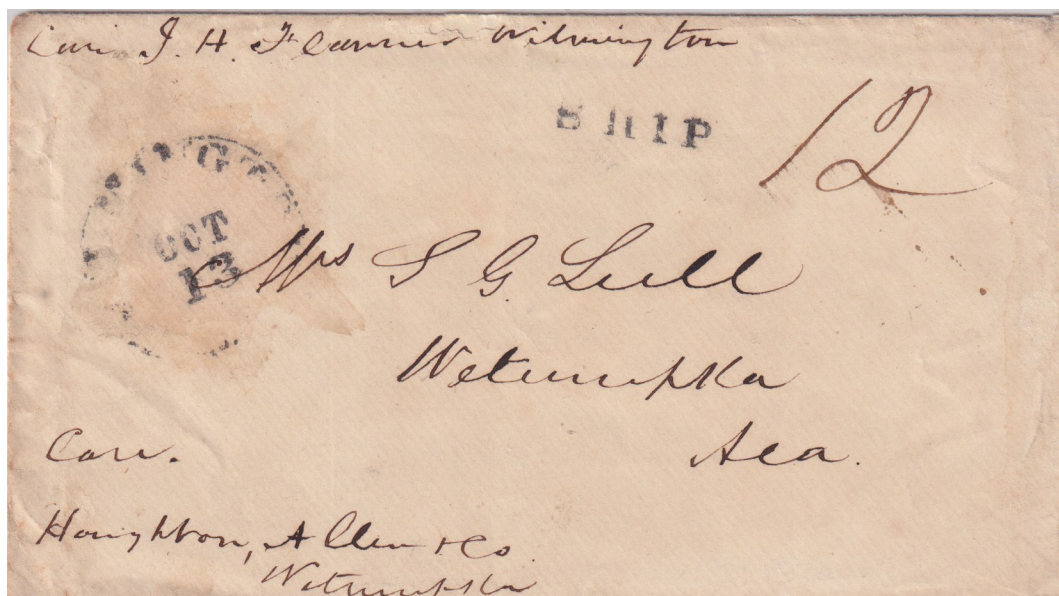 Care J. H. Flanner Wilmington
SHIP
12
OCT
13
Mrs S G Lull
Wetumpka
Ala.
Care.
Houghton, Allen & Co
Wetumpka